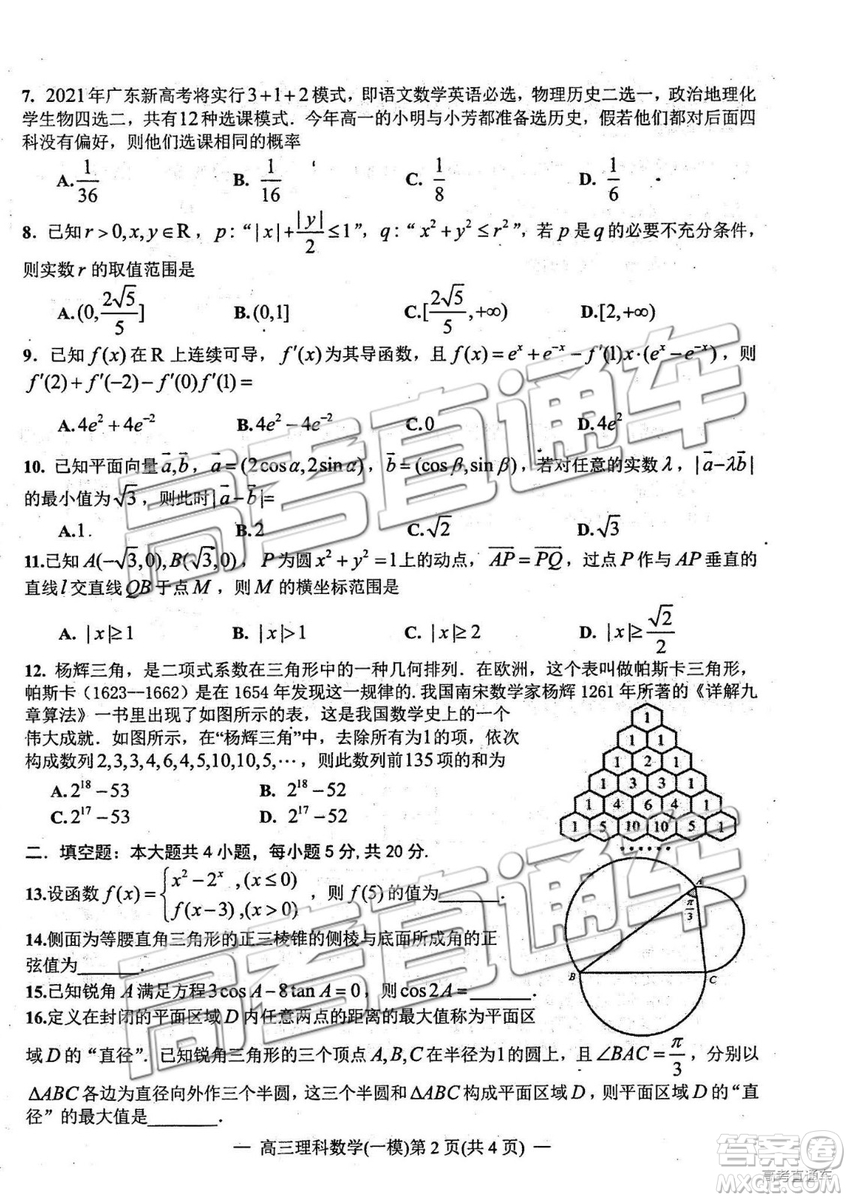 7. 2021年广东新高考将实行3+1+2模式，即语文数学英语必选，物理历史二选一，政治地理化
学生物四选二，共有12种选课模式．今年高一的小明与小芳都准备选历史，假若他们都对后面四
科没有偏好，则他们选课相同的概率
A. 1/36 B. 1/16 C. 1/8 D. 1/6
8. 已知r>0,x,y∈R，p："|x|+|y|/2≤1"，q："x²+y²≤r²"，若p是q的必要不充分条件，
则实数r的取值范围是
A.(0,2√5/5] B.(0,1] C.[2√5/5,+∞) D.[2,+∞)
9. 已知f(x)在R上连续可导，f′(x)为其导函数，且f(x)=eˣ+e⁻ˣ−f′(1)x·(eˣ−e⁻ˣ)，则
f′(2)+f′(−2)−f′(0)f′(1)=
A.4e²+4e⁻² B.4e²−4e⁻² C.0 D.4e²
10. 已知平面向量a⃗,b⃗，a⃗=(2cosα,2sinα)，b⃗=(cosβ,sinβ)，若对任意的实数λ，|a⃗−λb⃗|
的最小值为√3，则此时|a⃗−b⃗|=
A.1 B.2 C.√2 D.√3
11.已知A(−√3,0),B(√3,0)，P为圆x²+y²=1上的动点，AP=PQ，过点P作与AP垂直的
直线l交直线QB于点M，则M的横坐标范围是
A. |x|≥1 B. |x|>1 C. |x|≥2 D. |x|≥√2/2
12. 杨辉三角，是二项式系数在三角形中的一种几何排列．在欧洲，这个表叫做帕斯卡三角形，
帕斯卡（1623--1662）是在1654年发现这一规律的.我国南宋数学家杨辉1261年所著的《详解九
章算法》一书里出现了如图所示的表，这是我国数学史上的一个
伟大成就．如图所示，在"杨辉三角"中，去除所有为1的项，依次
构成数列2,3,3,4,6,4,5,10,10,5,⋯，则此数列前135项的和为
A.2¹⁸−53 B. 2¹⁸−52
C.2¹⁷−53 D. 2¹⁷−52
1
1 1
1 2 1
1 3 3 1
1 4 6 4 1
1 5 10 10 5 1
······
二．填空题：本大题共4小题，每小题5分,共20分.
13.设函数f(x)={x²−2ˣ ,(x≤0)
f(x−3) ,(x>0)，则f(5)的值为______.
14.侧面为等腰直角三角形的正三棱锥的侧棱与底面所成角的正
弦值为______.
15.已知锐角A满足方程3cosA−8tanA=0，则cos2A=______.
A
π/3
B
C
16.定义在封闭的平面区域D内任意两点的距离的最大值称为平面区
域D的"直径"．已知锐角三角形的三个顶点A,B,C在半径为1的圆上，且∠BAC=π/3，分别以
△ABC各边为直径向外作三个半圆，这三个半圆和△ABC构成平面区域D，则平面区域D的"直
径"的最大值是______.
— 高三理科数学(一模)第2页(共4页) —
高考直通车
答案卷
MXQE.COM
高考直通车